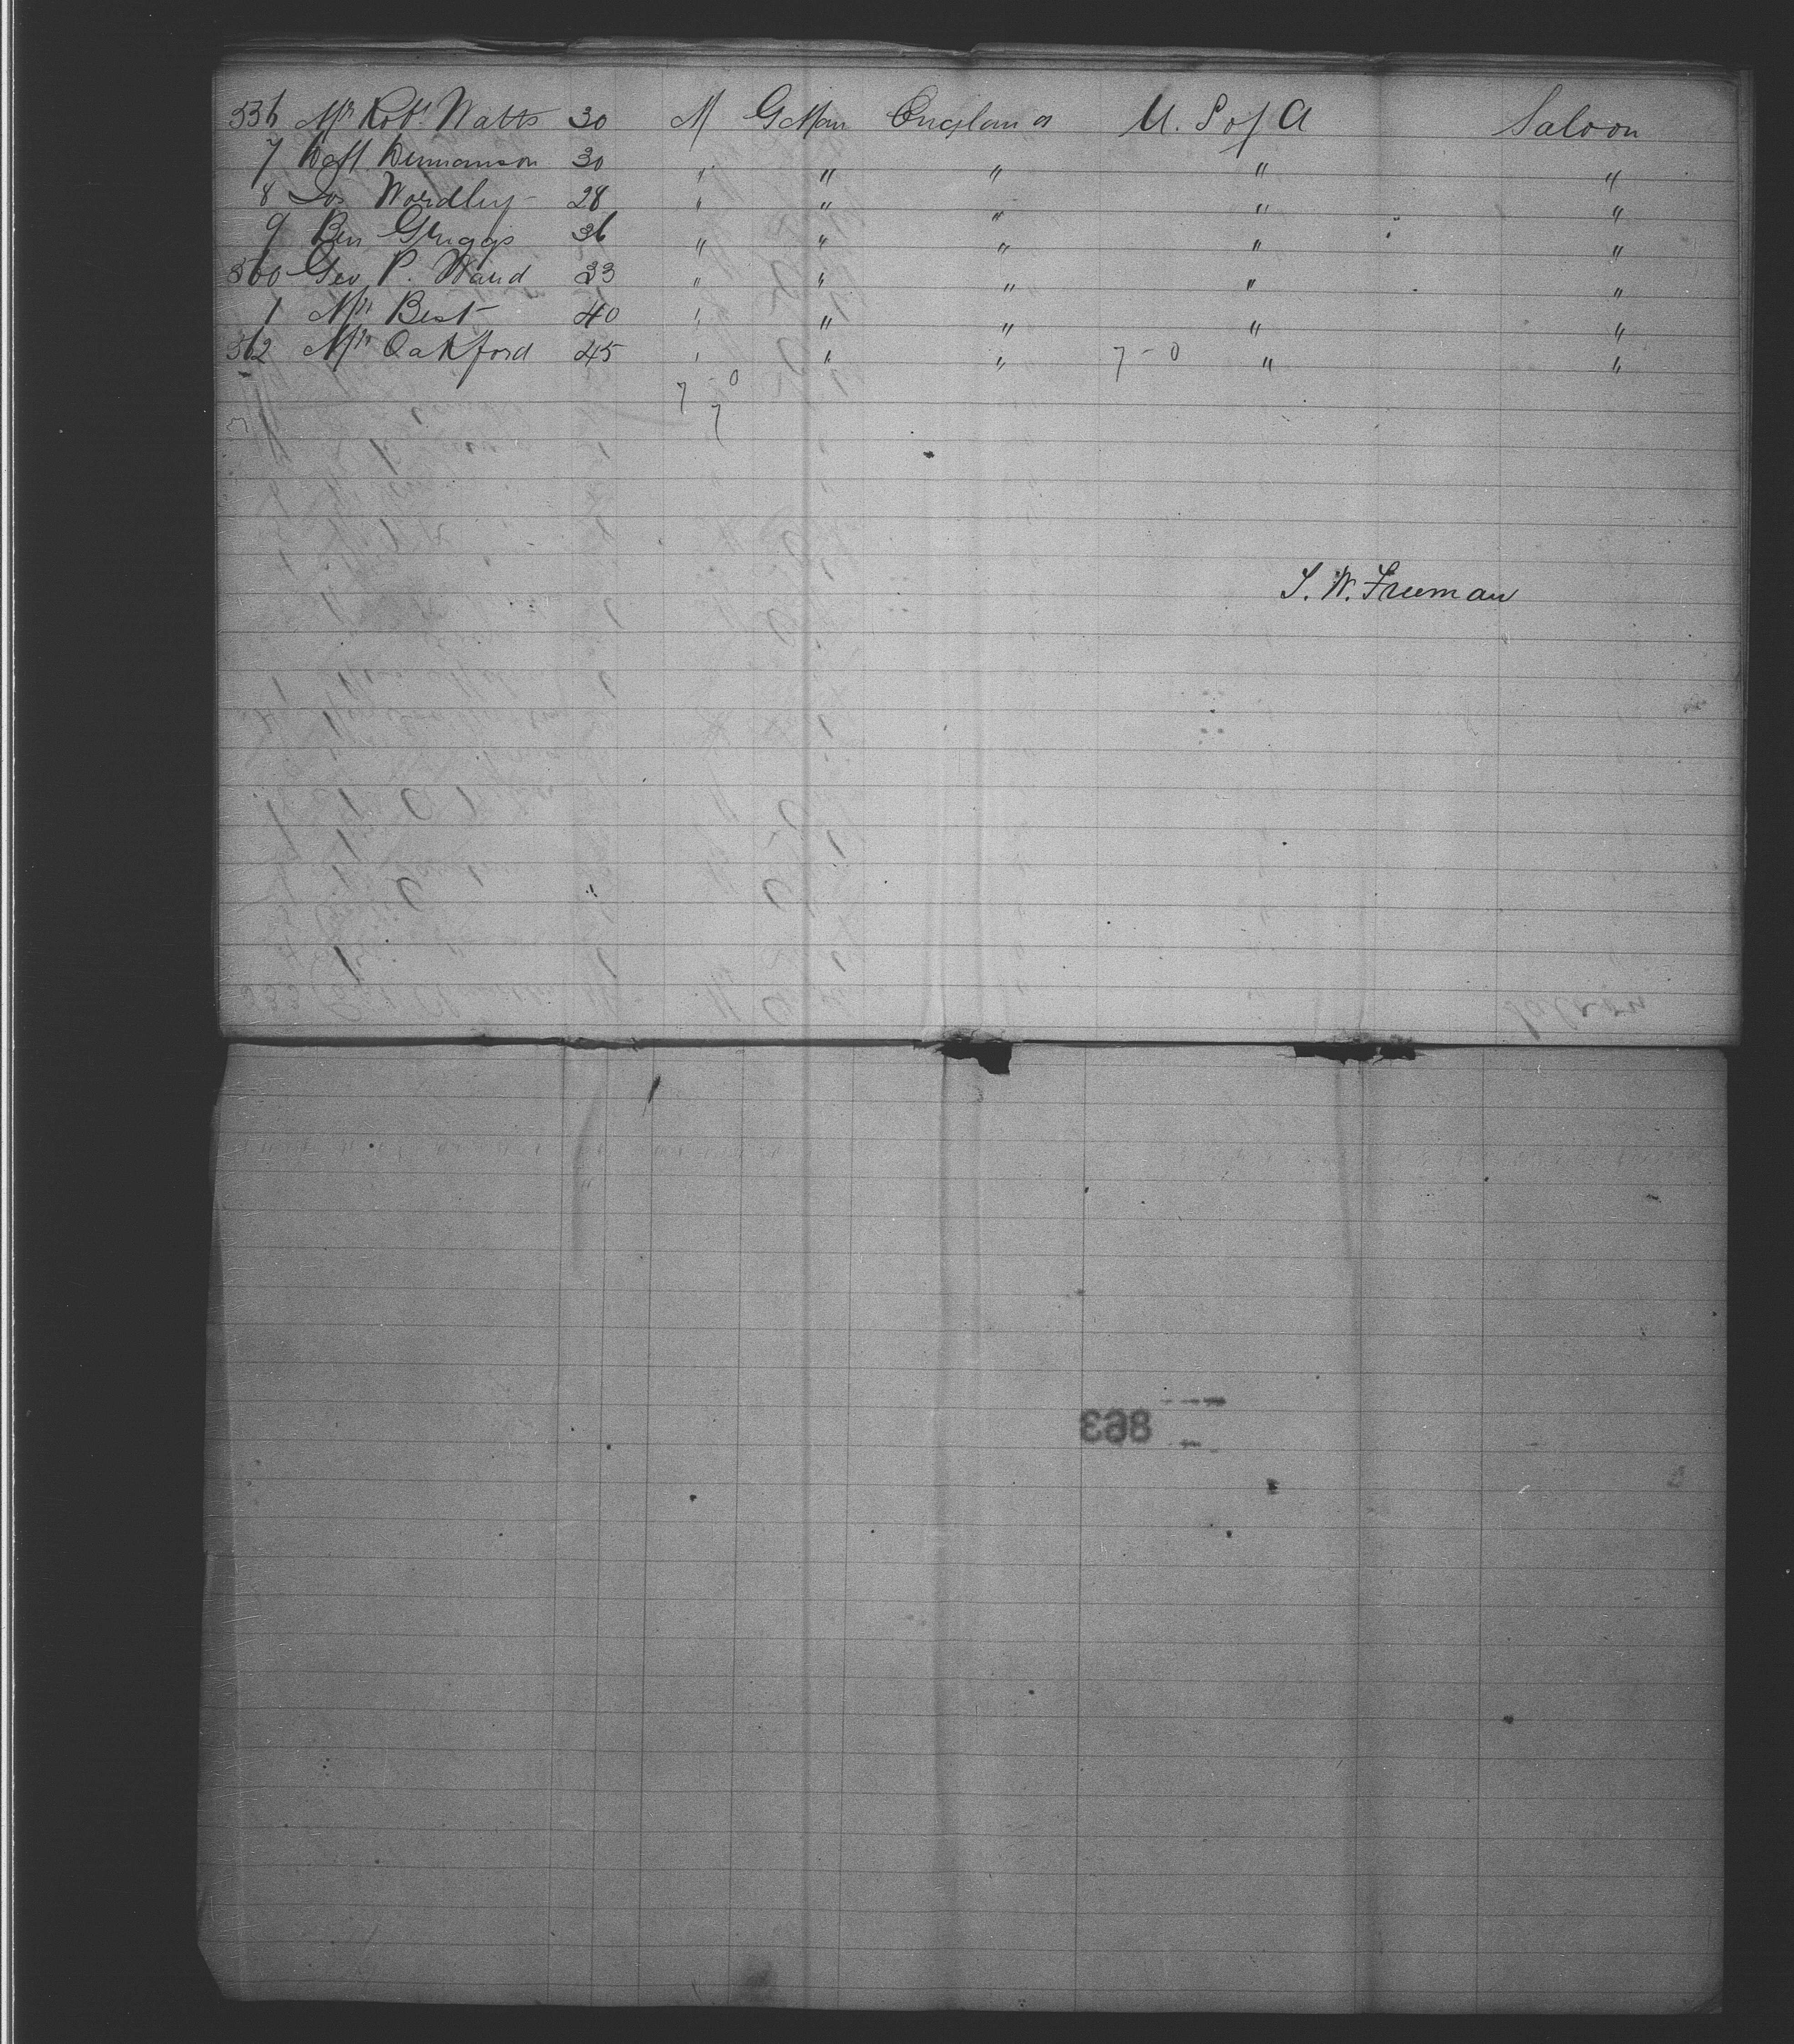 556 Mr Robt. Watts 30 M GMan England U. S of A Saloon
7 30 " " " " "
8 Jos Wordley 28 " " " " "
9 Ben Griggs 36 " " " " "
560 Geo P. Ward 33 " " " " "
1 Mr Best 40 " " " " "
562 Mr Oakford 45 " " " 7-0 " "
7 0
7
S. W. Freeman
863